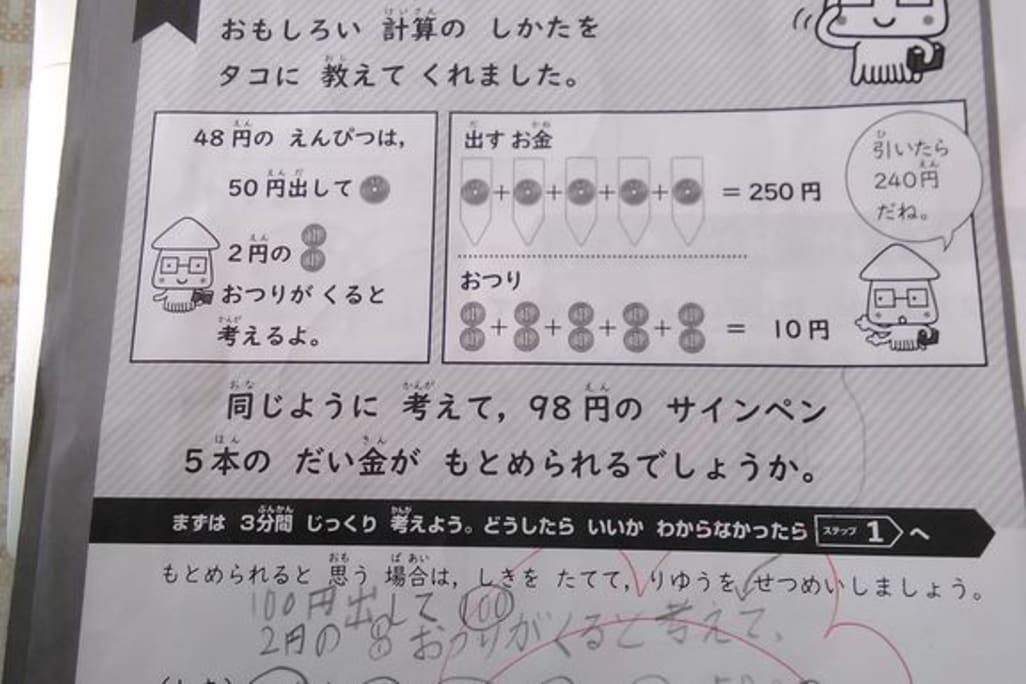 おもしろい 計算の しかたを
タコに 教えて くれました。
48円の えんぴつは,
50円出して
2円の
おつりが くると
考えるよ。
出すお金
+ + + + = 250円
おつり
+ + + + = 10円
引いたら
240円
だね。
同じように 考えて, 98円の サインペン
5本の だい金が もとめられるでしょうか。
まずは 3分間 じっくり 考えよう。どうしたら いいか わからなかったら ステップ 1 へ
もとめられると 思う 場合は, しきを たてて, りゆうを せつめいしましょう。
100円出して 100
2円の おつりがくると考えて、